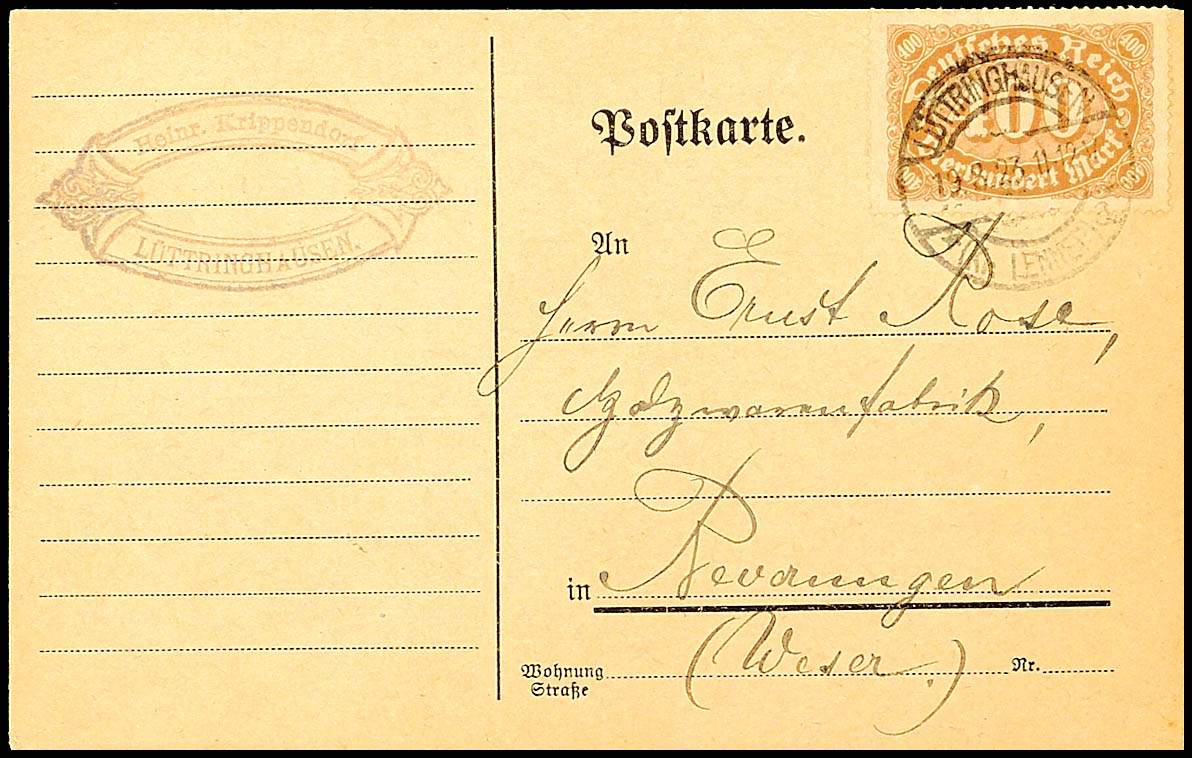 Heinr. Krippendorf
LÜTTRINGHAUSEN.
400 Deutsches Reich 400
400
400 Vierhundert Mark 400
LÜTTRINGHAUSEN
LENNEP
Postkarte.
An
Herrn Ernst Rose,
Holzwarenfabrik,
in Beverungen
(Weser.)
Wohnung
Straße
Nr.